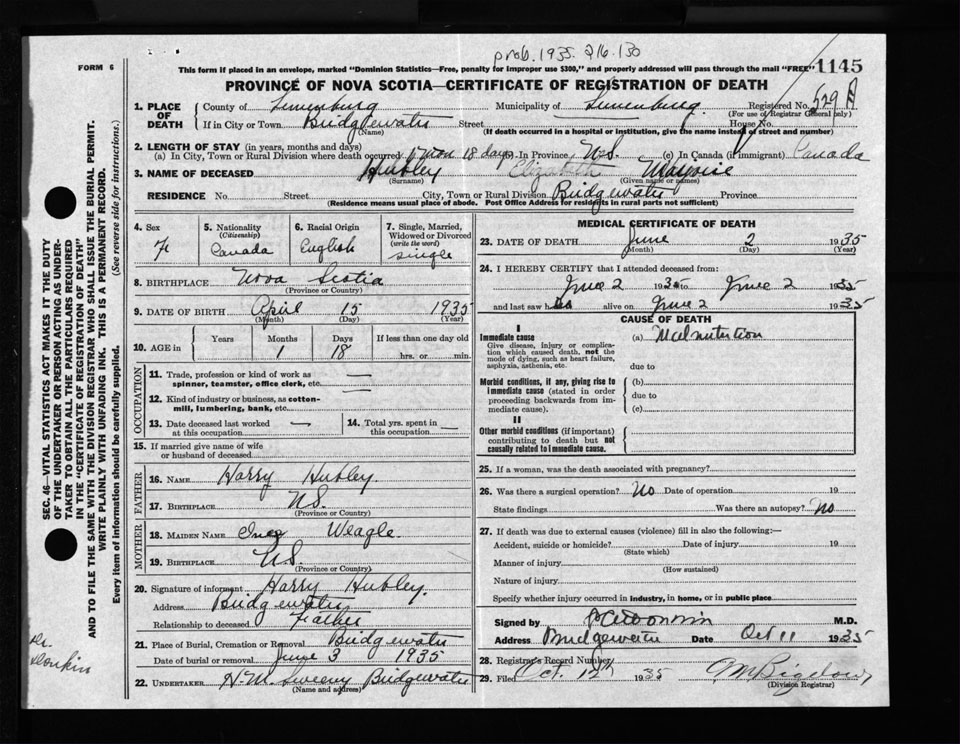 prob. 1935. 216.130
FORM 6
This form if placed in an envelope, marked "Dominion Statistics—Free, penalty for improper use $300," and properly addressed will pass through the mail "FREE" 1145
PROVINCE OF NOVA SCOTIA—CERTIFICATE OF REGISTRATION OF DEATH
1. PLACE OF DEATH County of Lunenburg Municipality of Lunenburg Registered No. 529
(For use of Registrar General only)
If in City or Town Bridgewater Street House No.
(Name) (If death occurred in a hospital or institution, give the name instead of street and number)
2. LENGTH OF STAY (in years, months and days)
(a) In City, Town or Rural Division where death occurred 1 mon 18 days (b) In Province N.S. (c) In Canada (if immigrant) Canada
3. NAME OF DECEASED Hubley Elizabeth Marjorie
(Surname) (Given name or names)
RESIDENCE No. Street City, Town or Rural Division Bridgewater Province
(Residence means usual place of abode. Post Office Address for residents in rural parts not sufficient)
4. Sex F
5. Nationality (Citizenship) Canada
6. Racial Origin English
7. Single, Married, Widowed or Divorced (write the word) single
8. BIRTHPLACE Nova Scotia
(Province or Country)
9. DATE OF BIRTH April 15 1935
(Month) (Day) (Year)
10. AGE in Years Months Days If less than one day old
1 18 hrs. or min.
OCCUPATION
11. Trade, profession or kind of work as spinner, teamster, office clerk, etc. —
12. Kind of industry or business, as cotton-mill, lumbering, bank, etc. —
13. Date deceased last worked at this occupation —
14. Total yrs. spent in this occupation —
15. If married give name of wife or husband of deceased
FATHER
16. NAME Harry Hubley
17. BIRTHPLACE N.S.
(Province or Country)
MOTHER
18. MAIDEN NAME Inez Weagle.
19. BIRTHPLACE N.S.
(Province or Country)
20. Signature of informant Harry Hubley.
Address Bridgewater
Relationship to deceased Father
21. Place of Burial, Cremation or Removal Bridgewater
Date of burial or removal June 3 1935
22. UNDERTAKER H.M. Sweeny Bridgewater
(Name and address)
MEDICAL CERTIFICATE OF DEATH
23. DATE OF DEATH June 2 1935
(Month) (Day) (Year)
24. I HEREBY CERTIFY that I attended deceased from:
June 2 1935 to June 2 1935
and last saw h alive on June 2 1935
CAUSE OF DEATH
I
Immediate cause (a) Malnutrition
Give disease, injury or complication which caused death, not the mode of dying, such as heart failure, asphyxia, asthenia, etc.
due to
Morbid conditions, if any, giving rise to immediate cause (stated in order proceeding backwards from immediate cause).
(b)
due to
(c)
II
Other morbid conditions (if important) contributing to death but not causally related to immediate cause.
25. If a woman, was the death associated with pregnancy?
26. Was there a surgical operation? No Date of operation 19
State findings Was there an autopsy? No
27. If death was due to external causes (violence) fill in also the following:—
Accident, suicide or homicide? Date of injury 19
(State which)
Manner of injury
(How sustained)
Nature of injury
Specify whether injury occurred in industry, in home, or in public place
Signed by M.D.
Address Bridgewater Date Oct 11 1935
28. Registrar's Record Number
29. Filed Oct. 12th 1935
(Division Registrar)
SEC. 46—VITAL STATISTICS ACT MAKES IT THE DUTY
OF THE UNDERTAKER OR PERSON ACTING AS UNDERTAKER
TO OBTAIN ALL THE PARTICULARS REQUIRED
IN THE "CERTIFICATE OF REGISTRATION OF DEATH"
AND TO FILE THE SAME WITH THE DIVISION REGISTRAR WHO SHALL ISSUE THE BURIAL PERMIT.
WRITE PLAINLY WITH UNFADING INK. THIS IS A PERMANENT RECORD.
Every item of information should be carefully supplied. (See reverse side for instructions.)
Dr.
Donkin